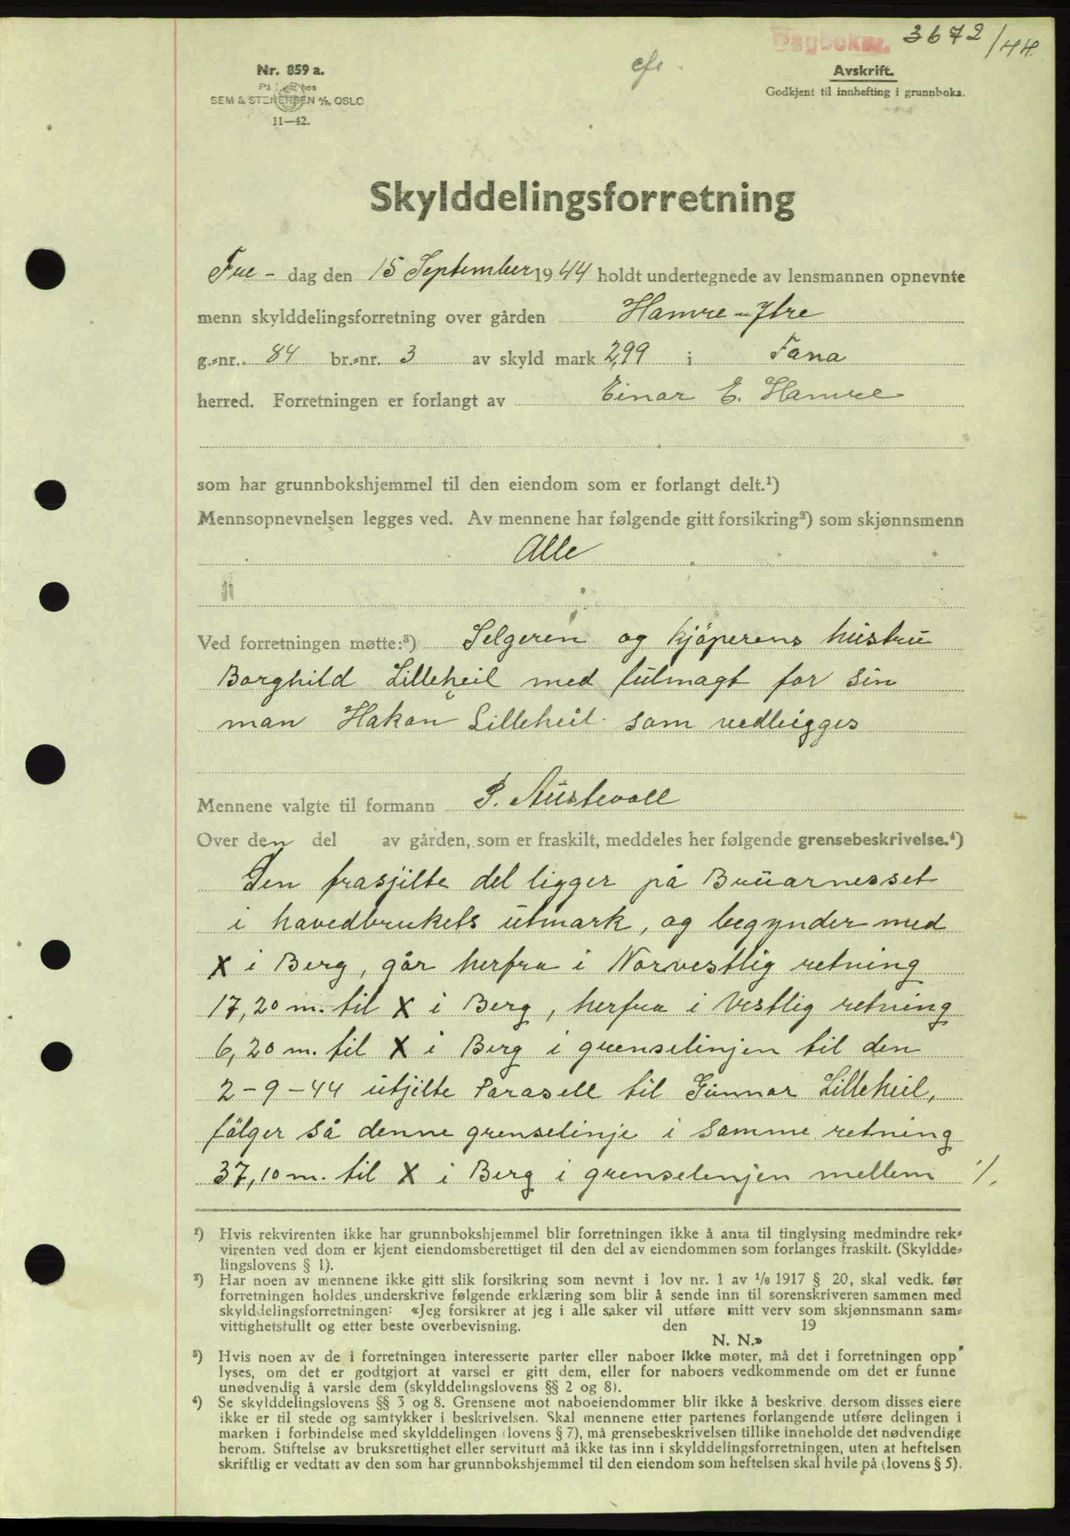 Dagboknr. 3672/44
efe.
Nr. 859 a.
SEM & STENERSEN A/S, OSLO
11—42.
Avskrift.
Godkjent til innhefting i grunnboka.
Skylddelingsforretning
Fre- dag den 15 September 1944 holdt undertegnede av lensmannen opnevnte
menn skylddelingsforretning over gården Hamre - Ytre
g.-nr. 84 br.-nr. 3 av skyld mark 2,99 i Fana
herred. Forretningen er forlangt av Einar E. Hamre
som har grunnbokshjemmel til den eiendom som er forlangt delt.¹)
Mennsopnevnelsen legges ved. Av mennene har følgende gitt forsikring²) som skjønnsmenn
Alle
Ved forretningen møtte:³) Selgeren og kjöperens hustru
Borghild Lilleheil med fulmagt for sin
man Hakon Lilleheil som vedleigges
Mennene valgte til formann P. Austevoll
Over den del av gården, som er fraskilt, meddeles her følgende grensebeskrivelse.⁴)
Den frasjilte del ligger på Bruarnesset
i havedbrukets utmark, og begynder med
X i Berg, går herfra i Norvestlig retning
17,20 m. til X i Berg, herfra i Vestlig retning
6,20 m. til X i Berg i grenselinjen til den
2-9-44 utjilte Parasell til Gunnar Lilleheil,
fölger så denne grenselinje i samme retning
37,10 m. til X i Berg i grenselenjen mellem ./.
¹) Hvis rekvirenten ikke har grunnbokshjemmel blir forretningen ikke å anta til tinglysing medmindre rek-
virenten ved dom er kjent eiendomsberettiget til den del av eiendommen som forlanges fraskilt. (Skyldde-
lingslovens § 1).
²) Har noen av mennene ikke gitt slik forsikring som nevnt i lov nr. 1 av 1/8 1917 § 20, skal vedk. før
forretningen holdes underskrive følgende erklæring som blir å sende inn til sorenskriveren sammen med
skylddelingsforretningen: «Jeg forsikrer at jeg i alle saker vil utføre mitt verv som skjønnsmann sam-
vittighetsfullt og etter beste overbevisning. den 19
N. N.»
³) Hvis noen av de i forretningen interesserte parter eller naboer ikke møter, må det i forretningen opp-
lyses, om det er godtgjort at varsel er gitt dem, eller for naboers vedkommende om det er funne
unødvendig å varsle dem (skylddelingslovens §§ 2 og 8).
⁴) Se skylddelingslovens §§ 3 og 8. Grensene mot naboeiendommer blir ikke å beskrive dersom disses eiere
ikke er til stede og samtykker i beskrivelsen. Skal mennene etter partenes forlangende utføre delingen i
marken i forbindelse med skylddelingen (lovens § 7), må grensebeskrivelsen tillike inneholde det nødvendige
herom. Stiftelse av bruksrettighet eller servitutt må ikke tas inn i skylddelingsforretningen, uten at heftelsen
skriftlig er vedtatt av den som har grunnbokshjemmel til den eiendom som heftelsen skal hvile på (lovens § 5).